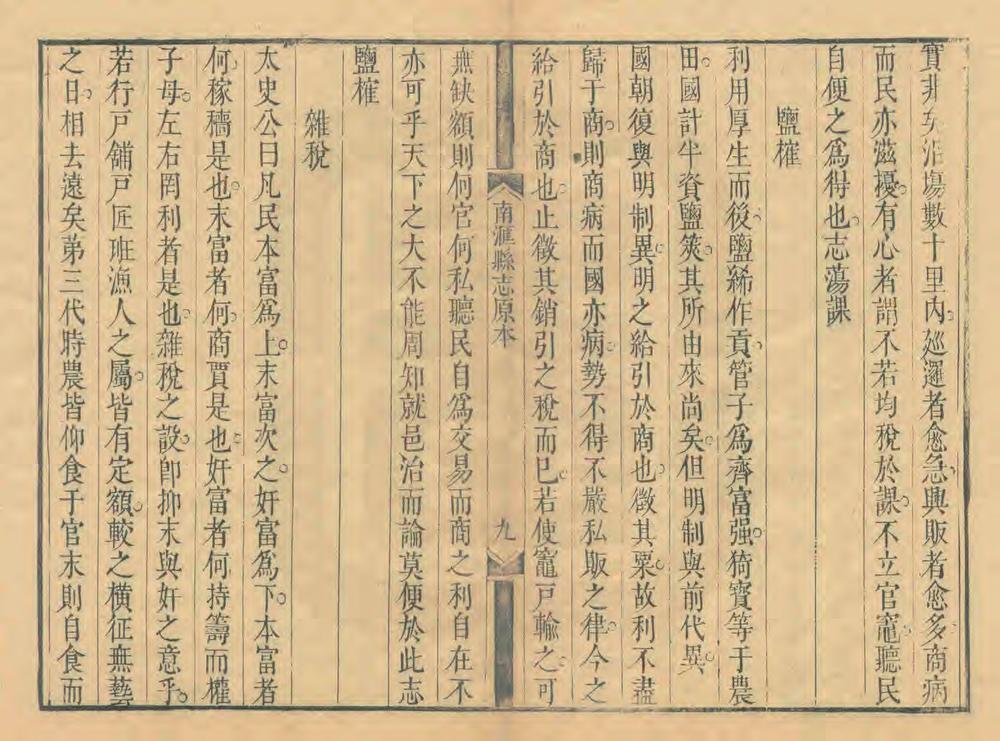 實非矣沿塲數十里內廵邏者愈急興販者愈多商病
而民亦滋擾有心者謂不若均稅於課不立官竈聽民
自便之爲得也志蕩課
鹽榷
利用厚生而後鹽絺作貢管子爲齊富强猗寶等于農
田國計半資鹽筴其所由來尚矣但明制與前代異
國朝復與明制異明之給引於商也徵其粟故利不盡
歸于商則商病而國亦病勢不得不嚴私販之律今之
給引於商也止徵其銷引之稅而已若使竈戸輸之可
南滙縣志原本
九
無缺額則何官何私聽民自爲交易而商之利自在不
亦可乎天下之大不能周知就邑治而論莫便於此志
鹽榷
雜稅
太史公曰凡民本富爲上末富次之奸富爲下本富者
何稼穡是也末富者何商賈是也奸富者何持籌而權
子母左右罔利者是也雜稅之設卽抑末與奸之意乎
若行戸舖戸匠班漁人之屬皆有定額較之橫征無藝
之日相去遠矣第三代時農皆仰食于官末則自食而